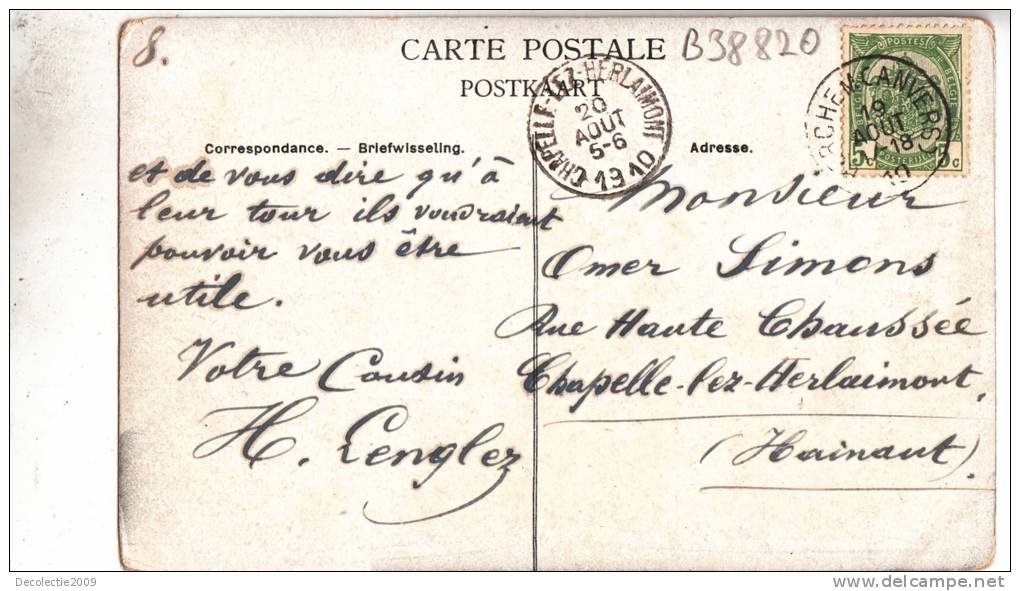 8.
CARTE POSTALE
B38820
POSTKAART
CHAPELLE-LEZ-HERLAIMONT
20
AOUT
5-6
1910
POSTES
BELGIE
POSTERIJEN
5c 5c
(ANVERS)
19
AOUT
18
10
Correspondance. — Briefwisseling.
Adresse.
et de vous dire qu'à
leur tour ils voudraient
pouvoir vous être
utile.
Votre Cousin
H. Lenglez
Monsieur
Omer Simons
Rue Haute Chaussée
Chapelle-lez-Herlaimont.
(Hainaut)
Decolectie2009
www.delcampe.net